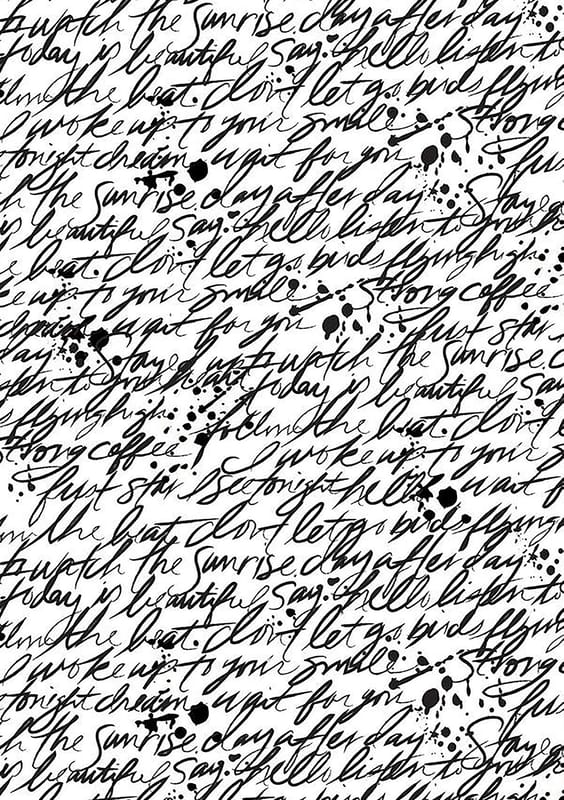 watch the sunrise day after day
today is beautiful say hello listen to
the beat. don't let go birds flying
I woke up to your smile strong
tonight dream wait for you just
the sunrise day after day Stayed
is beautiful say hello listen to your
the beat. don't let go birds flying high
up to your smile strong coffee
dream wait for you just star
day Stayed up to watch the sunrise
listen to your today is beautiful say
flying high follow the beat. don't
strong coffee I woke up to your
just star I see tonight wait f
the beat don't let go birds flying
watch the sunrise day after day
today is beautiful say hello listen to
the beat. don't let go birds flying
I woke up to your smile strong
tonight dream wait for you just
the sunrise day after day Stayed
is beautiful say hello listen to your